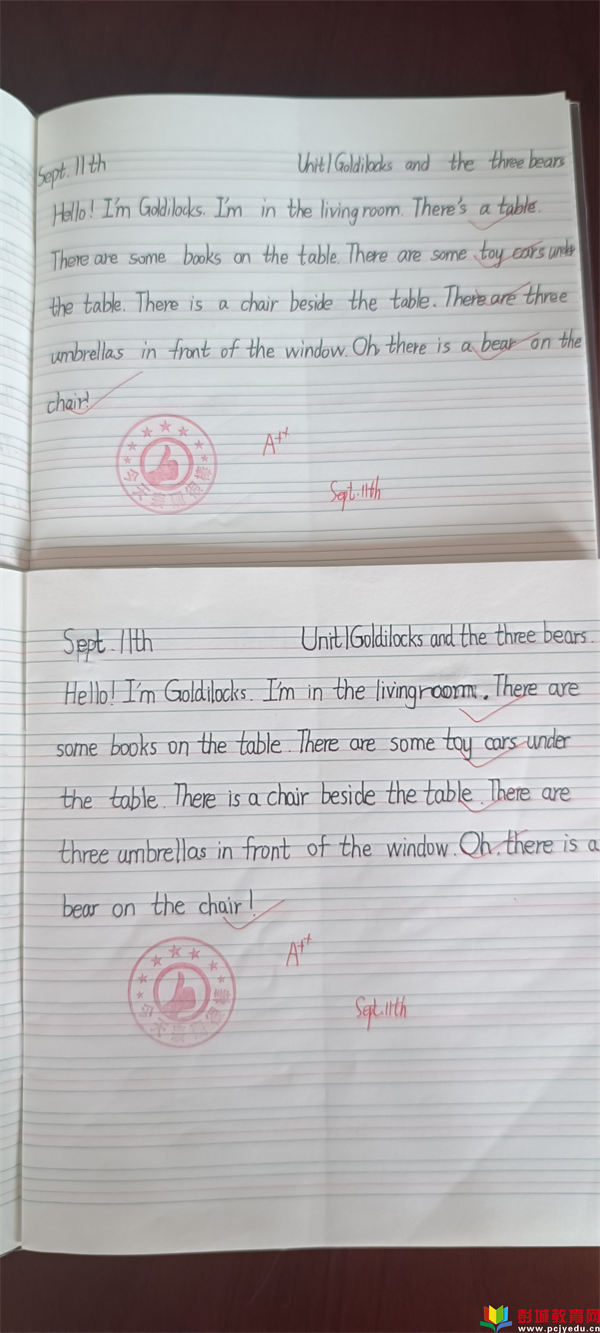 Sept. 11th Unit1Goldilocks and the three bears
Hello! I'm Goldilocks. I'm in the living room. There's a table.
There are some books on the table. There are some toy cars under
the table. There is a chair beside the table. There are three
umbrellas in front of the window. Oh, there is a bear on the
chair!
A++
Sept. 11th
Sept. 11th Unit1Goldilocks and the three bears.
Hello! I'm Goldilocks. I'm in the livingroom. There are
some books on the table. There are some toy cars under
the table. There is a chair beside the table. There are
three umbrellas in front of the window. Oh, there is a
bear on the chair!
A++
Sept. 11th
彭城教育网
www.pcjyedu.cn